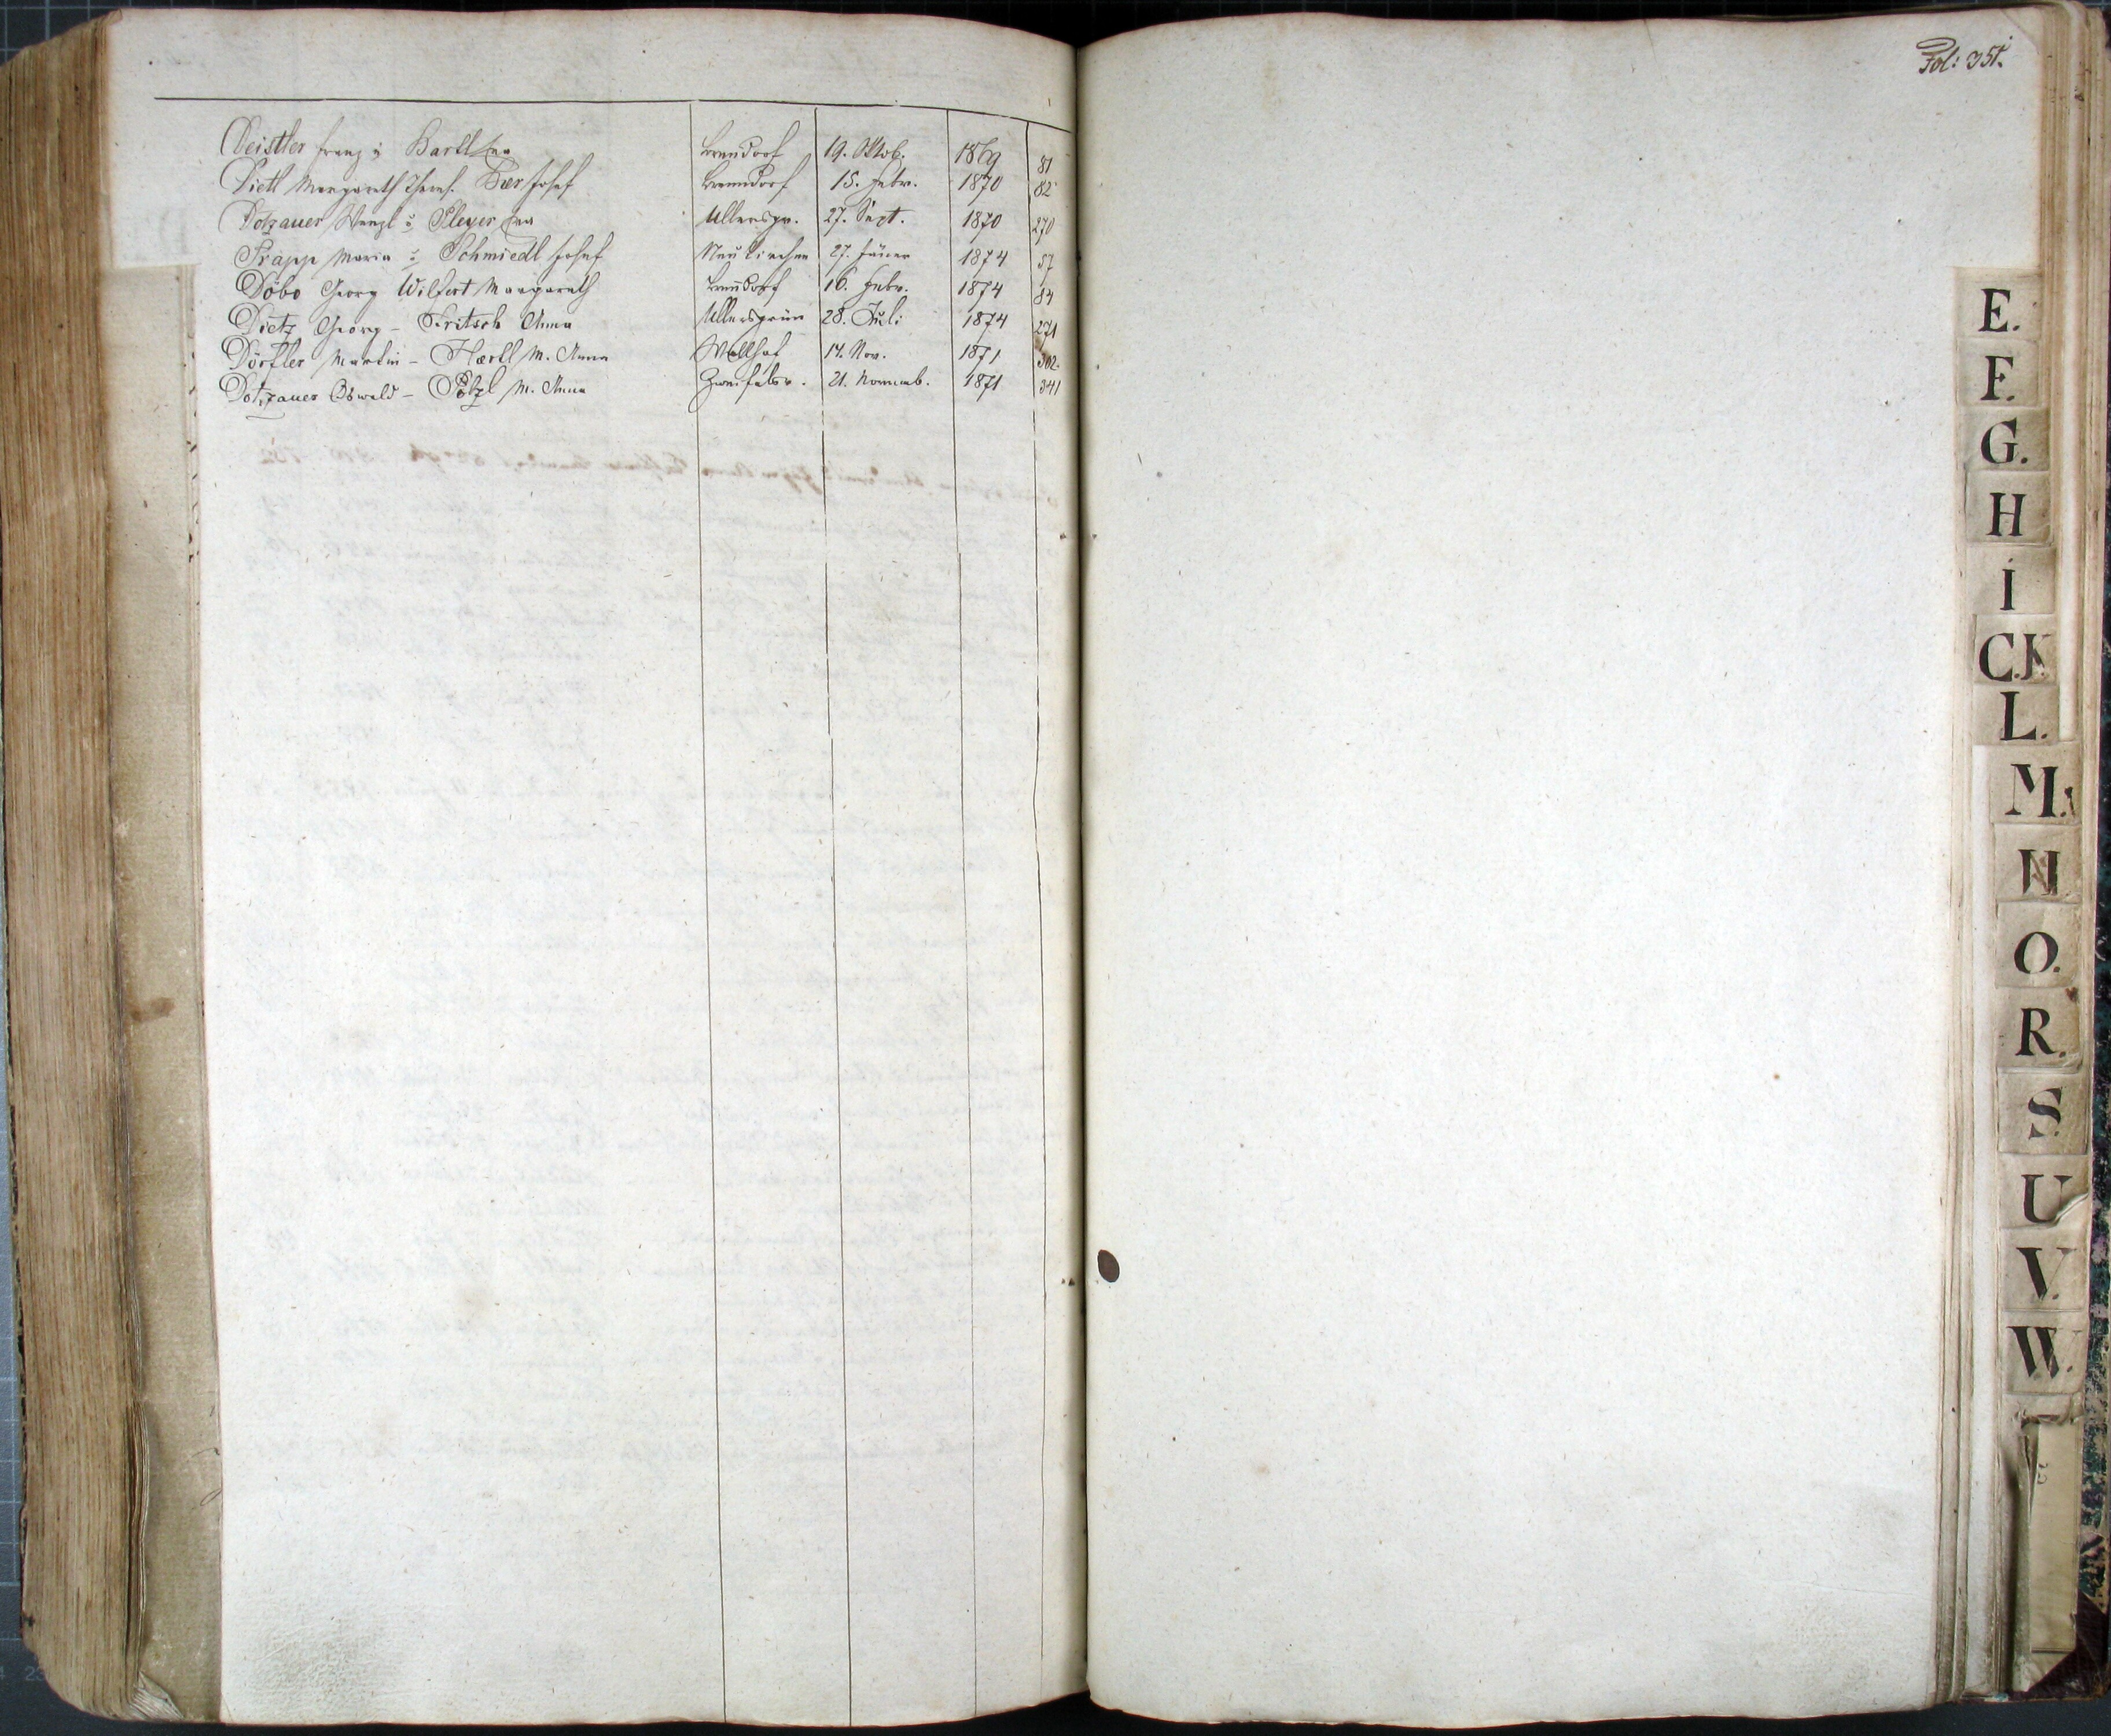 Deistler Franz u Bartl Eva Brendorf 19. Oktob. 1869 81
Dietl Margareth Theres. Bär Josef Brendorf 15. Febr. 1870 82
Dotzauer Wenzl u Pleyer Eva Ullersgr. 27. Sept. 1870 270
Trapp Maria u Schmiedl Josef Neukirchen 27. Jäner 1874 57
Döbo Georg Wilfert Margareth Brendorf 16. Febr. 1874 84
Dietz Georg - Fritsch Anna Ullersgrün 28. Juli 1874 271
Dörfler Martin - Haertl M. Anna Wallhof 14. Nov. 1871 302.
Dotzauer Oswald - Pötzl M. Anna 21. Novemb. 1871 341
Fol: 351.
E.
F.
G.
H
I
C.K
L.
M.
N
O.
R.
S.
U
V.
W.